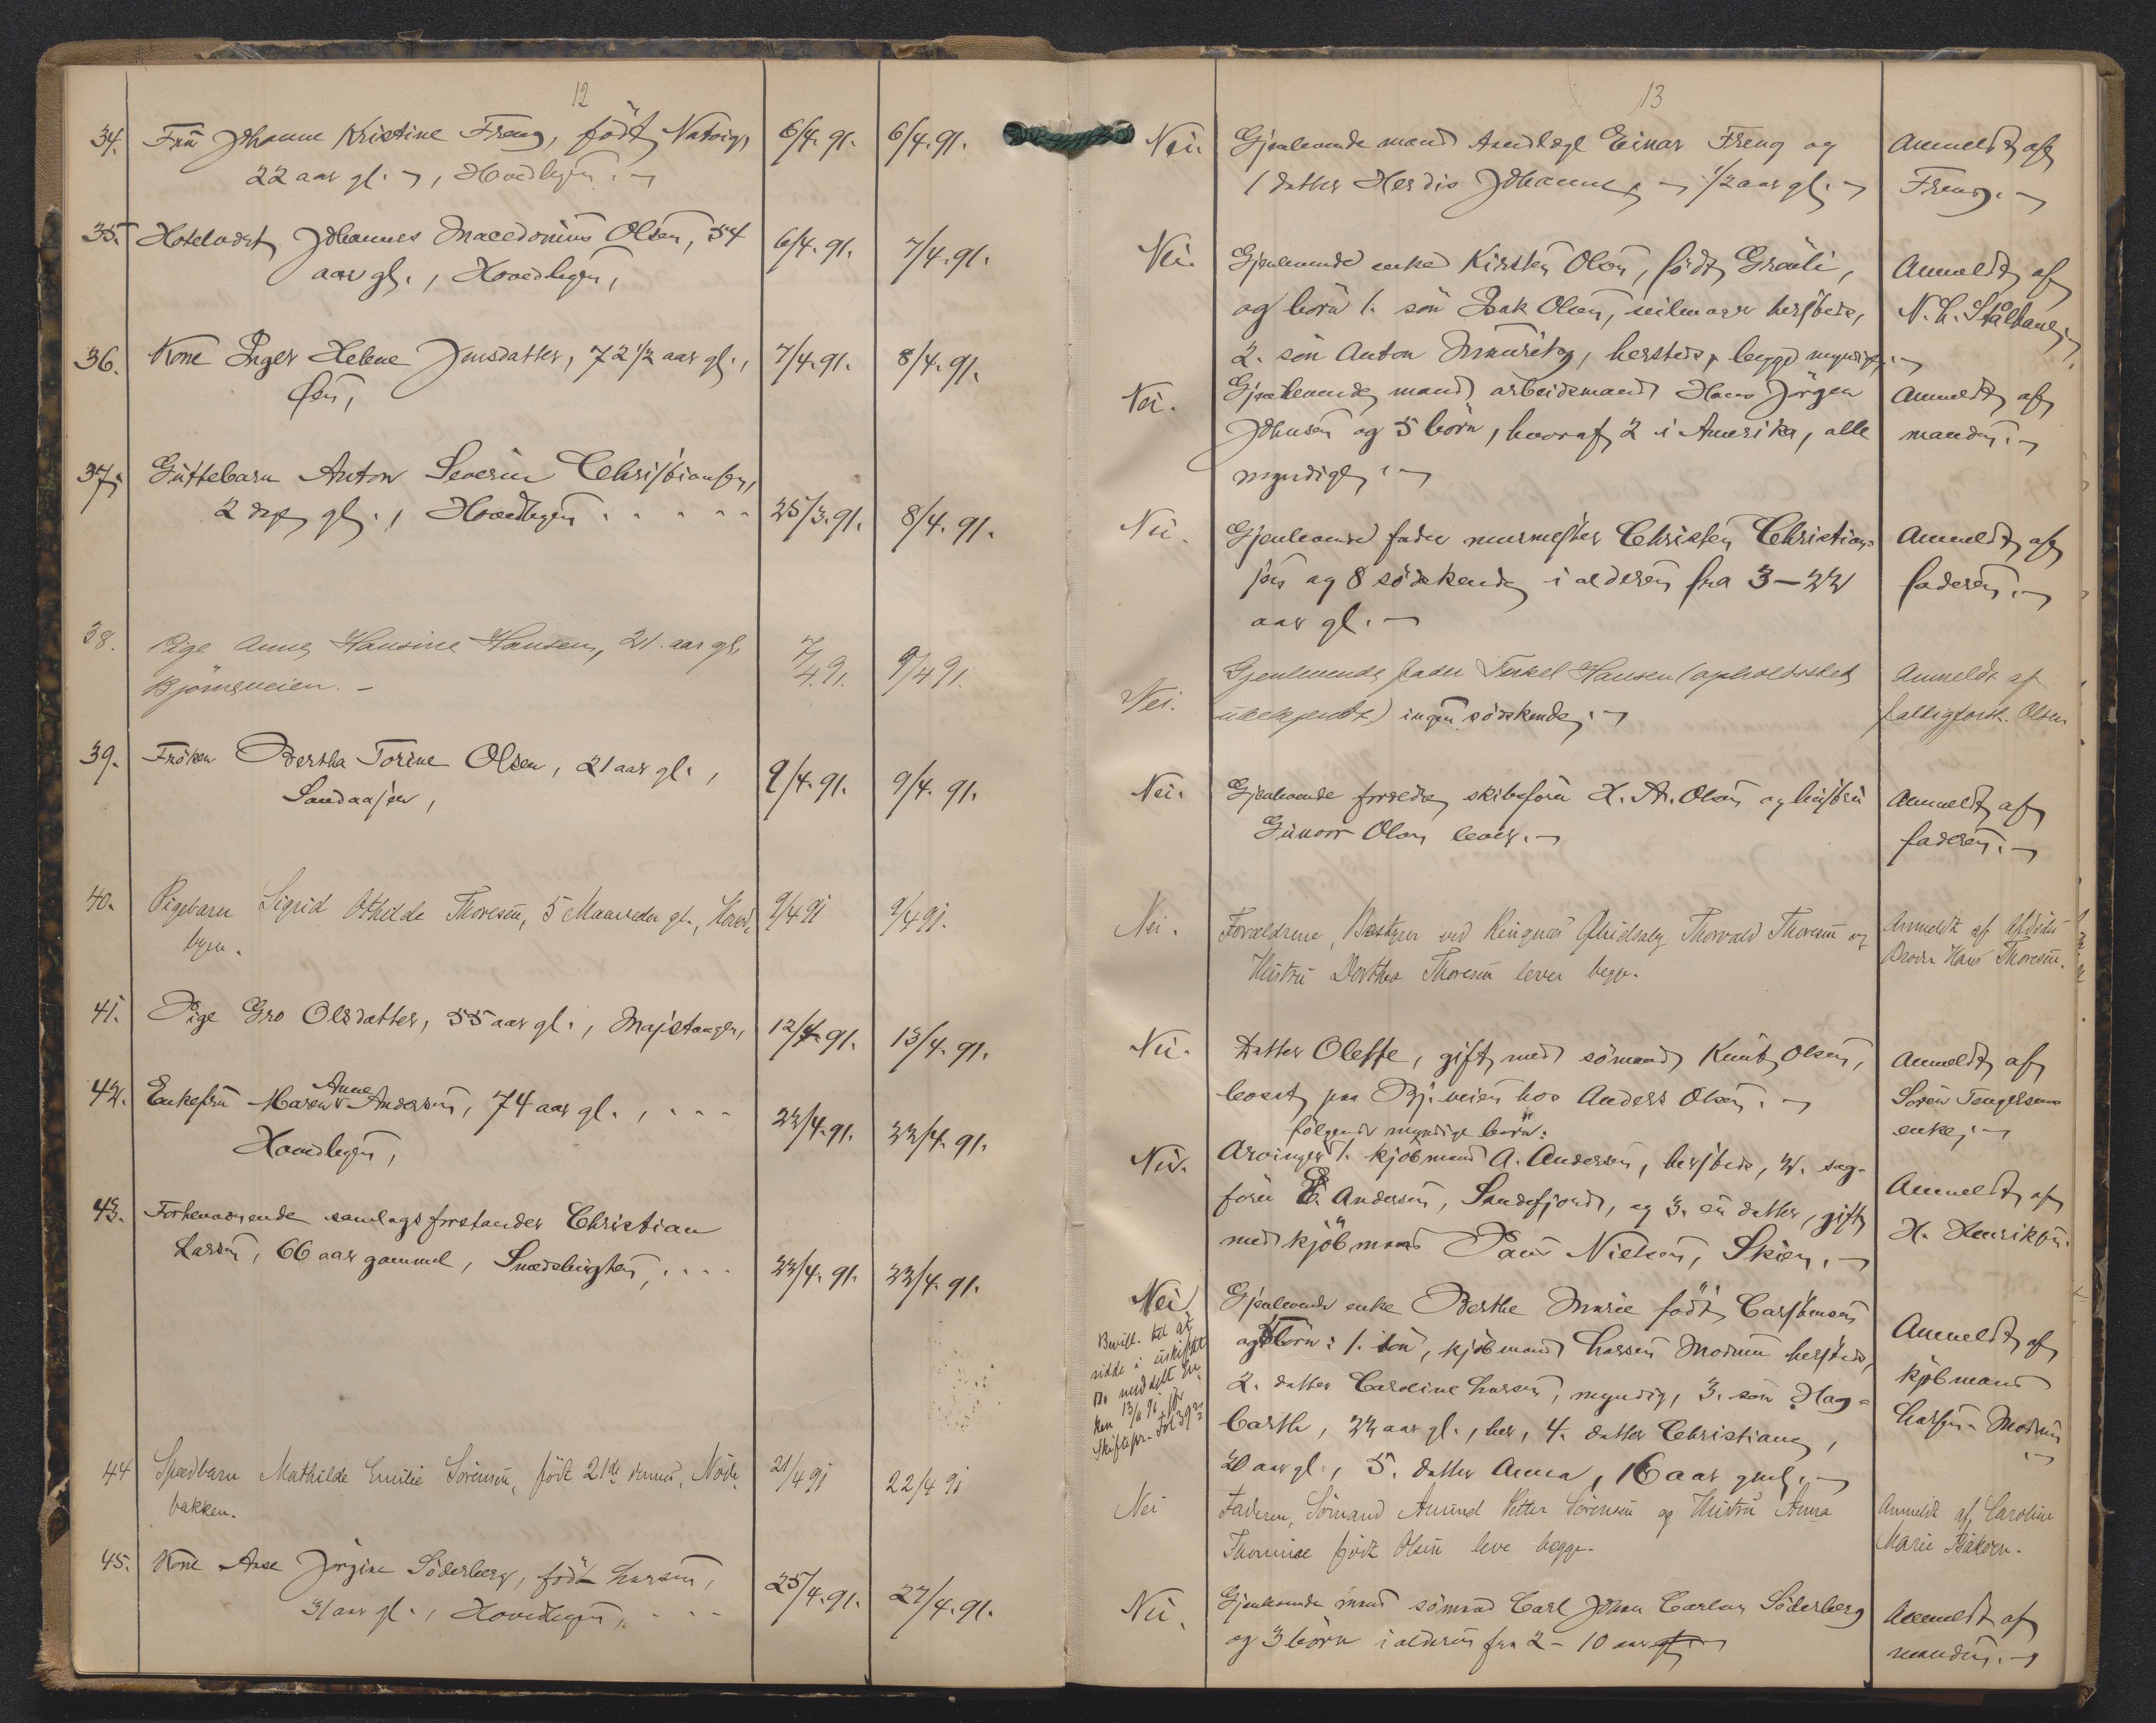 12
34. Frü Johanne Kristine Freng, födt Natvig,
22 aar gl., Hovedbyen.
6/4. 91. 6/4. 91.
35. Hotelvært Johannes Macedonius Olsen, 54
aar gl., Hovedbyen,
6/4. 91. 7/4. 91.
36. Kone Inger Helene Jensdatter, 72 1/2 aar gl.,
Øen,
7/4. 91. 8/4. 91.
37. Guttebarn Anton Severin Christiansen,
2 dage gl., Hovedbyen . . . . .
25/3. 91. 8/4. 91.
38. Pige Anna Hansine Hansen, 21 aar gl.
Björneveien. –
7/4. 91. 9/4 91.
39. Fröken Bertha Torine Olsen, 21 aar gl.,
Sandaasen,
9/4. 91. 9/4. 91.
40. Pigebarn Sigrid Othilde Thoresen, 5 Maaneder gl., Hoved-
byen.
9/4 91 9/4 91.
41. Pige Gro Olsdatter, 55 aar gl., Majstangen,
12/4. 91. 13/4. 91.
42. Enkefrü Maren Anne Andersen, 74 aar gl., . . .
Hovedbyen,
22/4. 91. 22/4. 91.
43. Forhenværende samlagsforstander Christian
Larsen, 66 aar gammel, Smedsbugten, . . . .
22/4. 91. 22/4. 91.
44 Spædbarn Mathilde Emilie Sörensen, födt 21de dennes,
bakken.
21/4 91 22/4 91
45. Kone Anse Jörgine Söderberg, födt Larsen,
31 aar gl., Hovedbyen, . . .
25/4. 91. 27/4. 91.
13
Nei. Gjenlevende mand Einar Freng og
1 datter Herdis Johanne, 1/2 aar gl.
Anmeldt af
Freng.
Nei. Gjenlevende enke Kirsten Olsen, födt Gravli,
og börn 1. sön Isak Olsen, seilmager hersteds,
2. sön Anton Mauritz, hersteds, begge myndige.
Anmeldt af
N. L.
Nei. Gjenlevende mand arbeidsmand Hans Jörgen
Johnsen og 5 börn, hvoraf 2 i Amerika, alle
myndige.
Anmeldt af
manden.
Nei. Gjenlevende fader murmester Christen Christian-
sen og 8 södskende i alderen fra 3–22
aar gl.
Anmeldt af
faderen.
Nei. Gjenlevende fader Terkel Hansen (opholdssted
übekjendt) ingen södskende.
Anmeldt af
fattigforst. Olsen
Nei. Gjenlevende forældre skibsförer H. A. Olsen og hüstrü
Gunvor Olsen lever.
Anmeldt af
faderen.
Nei. Forældrene, Bestyrer ved Ringnæs Ölüdsalg Thorvald Thoresen og
Hüstrü Dorthea Thoresen lever begge.
Anmeldt af Afdödes
Broder Hans Thoresen.
Nei. Datter Oleffe, gift med sömand Knüt Olsen,
bosat paa Bj. veien hos Anders Olsen.
Anmeldt af
Sören Tengelsens
enke.
følgende myndige börn:
Nei. Arvinger 1. kjöbmand A. Andersen, hersteds, 2. sag-
förer E. Andersen, Sandefjord, og 3. en datter, gift
med kjöbmand Paul Nielsen, Skien.
Anmeldt af
H. Henriksen.
Nei. Gjenlevende enke Berthe Marie födt Carstensen
og 5 börn: 1. sön, kjöbmand Larsen Modum hersteds,
2. datter Caroline Larsen, myndig, 3. sön Hag-
barth, 22 aar gl., her, 4. datter Christiane,
20 aar gl., 5. datter Anna, 16 aar gml.
Bevill. til at
sidde i üskiftet
Bo meddelt En-
ken 13/6 91, jfr
Skiftepr. Fol 39
Anmeldt af
kjöbmand
Larsen-Modum
Nei Faderen, Sömand Amünd Petter Sörensen og Hüstrü Anna
Thomine födt Olsen leve begge.
Anmeldt af Caroline
Marie
Nei. Gjenlevende mand sömand Carl Johan Carlsen Söderberg
og 3 börn i alderen fra 2–10 aar
Anmeldt af
manden.